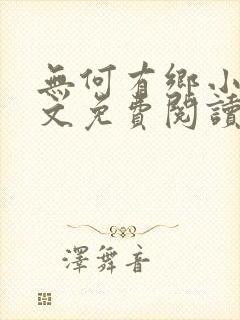 無何有鄉小
文免費閱讀
澤舞音